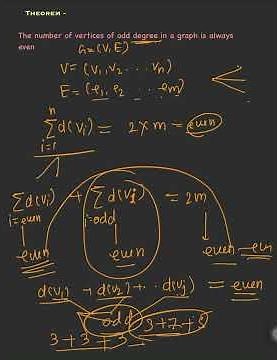 THEOREM -
The number of vertices of odd degree in a graph is always
even
G=(V,E)
V = (v₁,v₂ . . . vₙ)
E = (e₁, e₂ . . . em)
n
∑ d(vᵢ) = 2×m = even
i=1
∑ d(vᵢ) + ∑ d(vⱼ) = 2m
i=even i=odd
even even even - even
d(v₁) + d(v₂) + . d(vⱼ) = even
odd 3+7+5
3 + 3 + 3